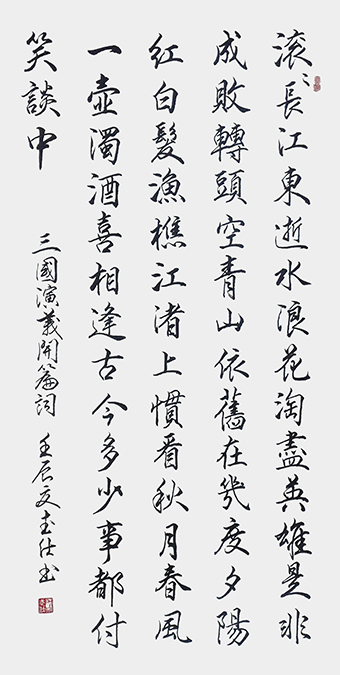 滚〻長江東逝水浪花淘盡英雄是非
成敗轉頭空青山依舊在幾度夕陽
紅白髮漁樵江渚上慣看秋月春風
一壺濁酒喜相逢古今多少事都付
笑談中
三國演義開篇詞 壬辰夏 书